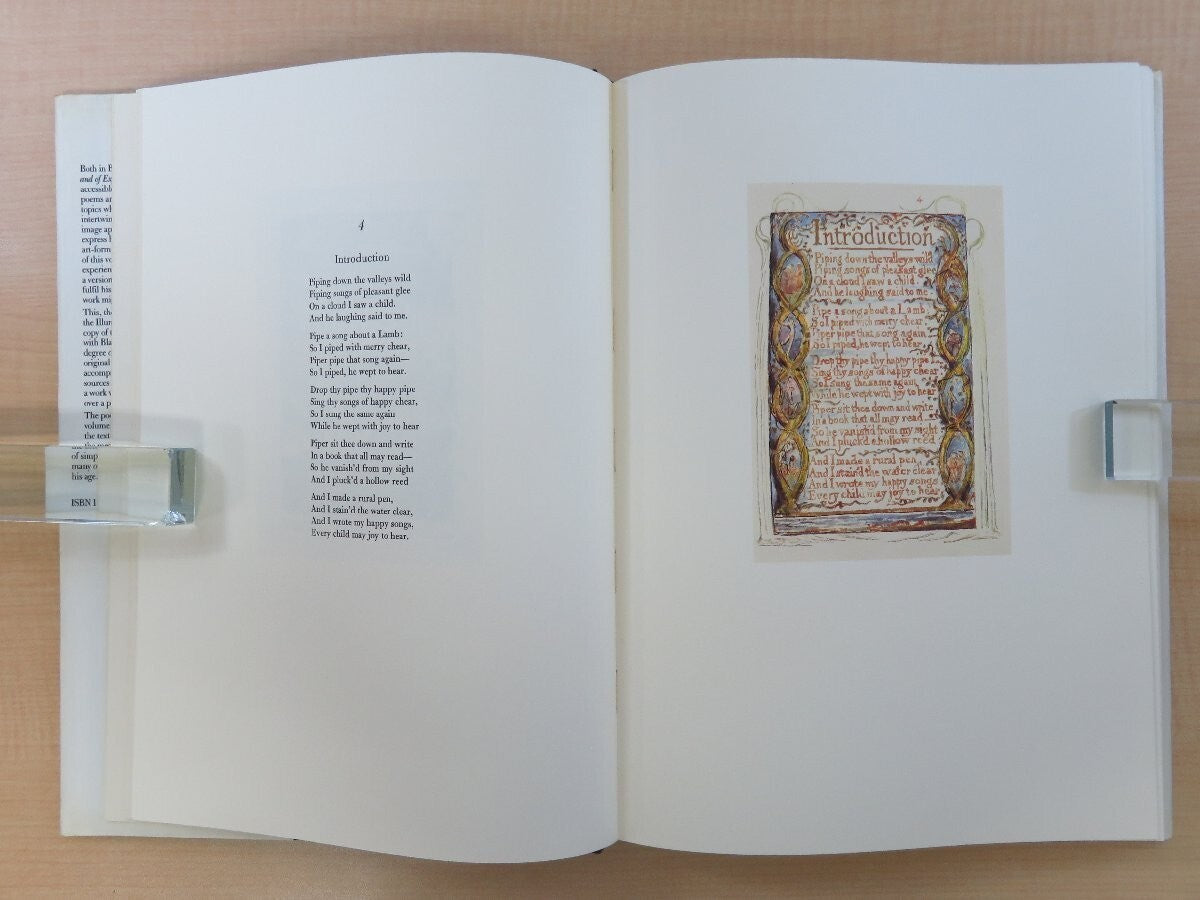 Both in B
and of Ex
accessibl
poems an
topics wh
intertwin
image ap
express h
art-form
of this vo
experien
a version
fulfil his
work mi
This, the
the Illum
copy of t
with Bla
degree o
original
accomp
sources
a work w
over a p
The poe
volume
the text
of simp
many o
his age.
ISBN 1
4
Introduction
Piping down the valleys wild
Piping songs of pleasant glee
On a cloud I saw a child.
And he laughing said to me.
Pipe a song about a Lamb:
So I piped with merry chear,
Piper pipe that song again—
So I piped, he wept to hear.
Drop thy pipe thy happy pipe
Sing thy songs of happy chear,
So I sung the same again
While he wept with joy to hear
Piper sit thee down and write
In a book that all may read—
So he vanish'd from my sight
And I pluck'd a hollow reed
And I made a rural pen,
And I stain'd the water clear,
And I wrote my happy songs,
Every child may joy to hear.
4
Introduction
Piping down the valleys wild
Piping songs of pleasant glee
On a cloud I saw a child.
And he laughing said to me.
Pipe a song about a Lamb:
So I piped with merry chear,
Piper pipe that song again—
So I piped, he wept to hear.
Drop thy pipe thy happy pipe
Sing thy songs of happy chear
So I sung the same again
While he wept with joy to hear
Piper sit thee down and write
In a book that all may read—
So he vanish'd from my sight
And I pluck'd a hollow reed
And I made a rural pen,
And I stain'd the water clear,
And I wrote my happy songs
Every child may joy to hear